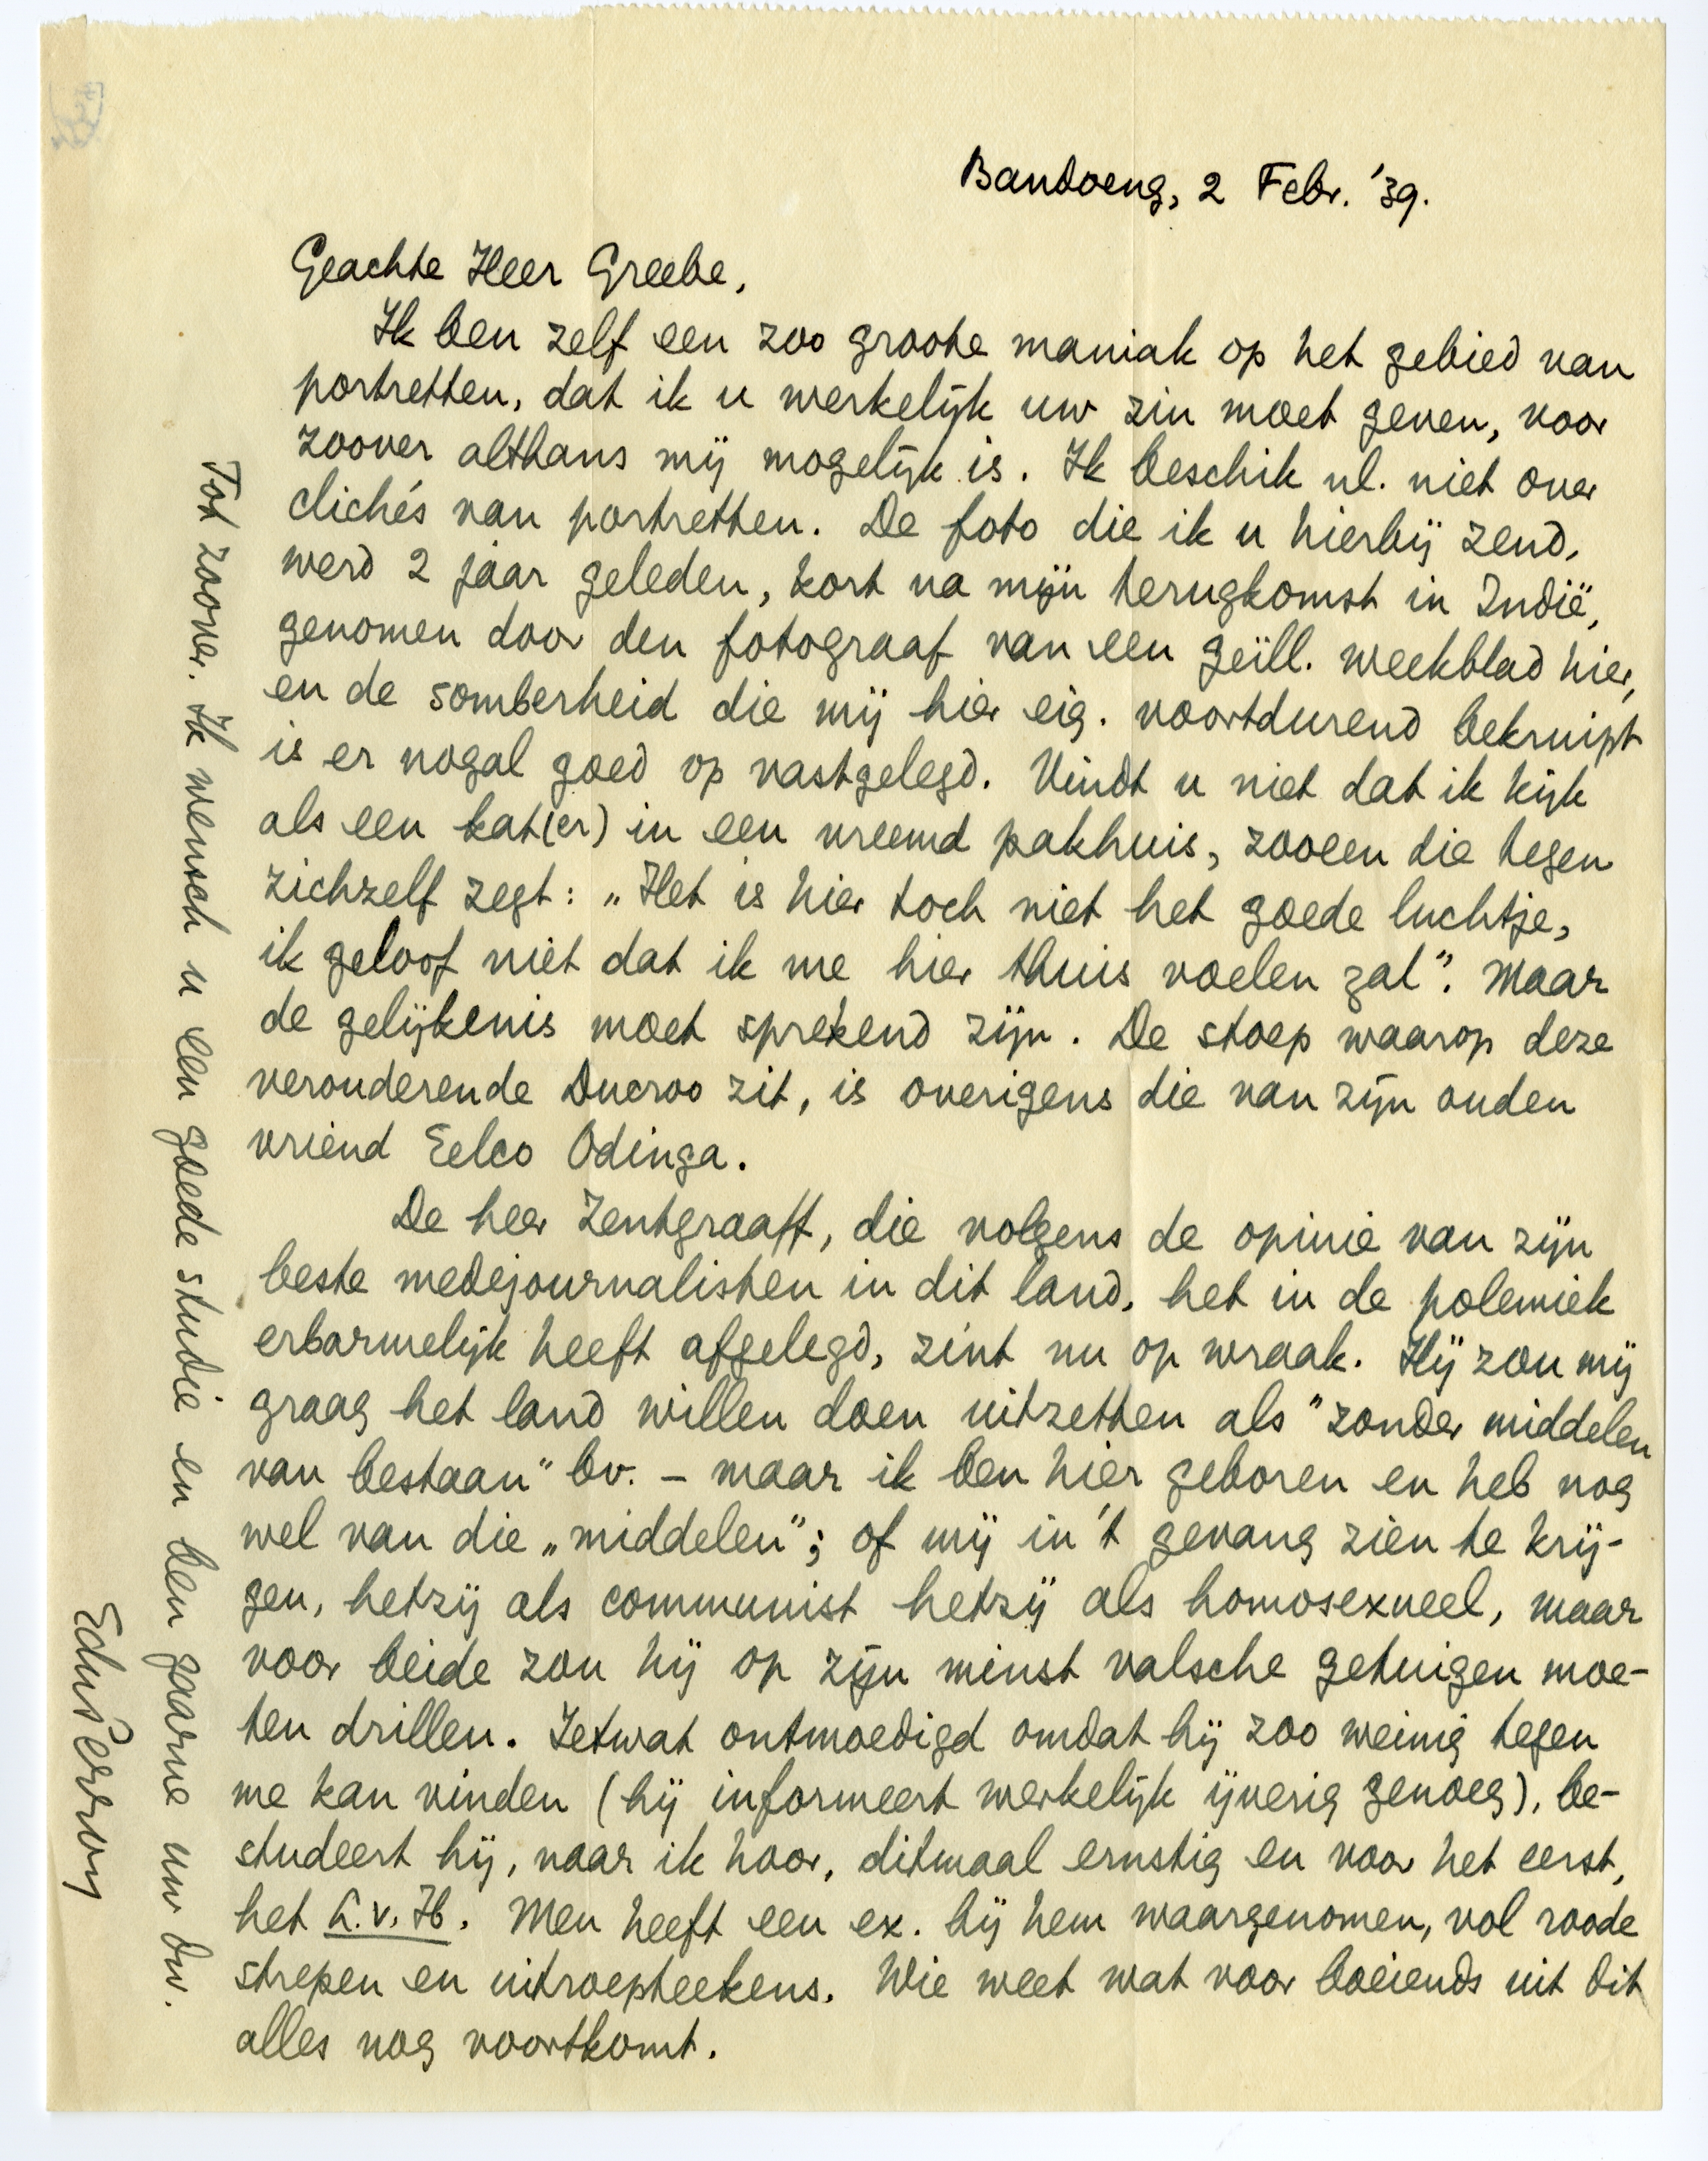 Bandoeng, 2 Febr. '39.
Geachte Heer Greebe,
Ik ben zelf een zoo groote maniak op het gebied van
portretten, dat ik u werkelijk uw zin moet geven, voor
zoover althans mij mogelijk is. Ik beschik nl. niet over
clichés van portretten. De foto die ik u hierbij zend,
werd 2 jaar geleden, kort na mijn terugkomst in Indië,
genomen door den fotograaf van een geïll. weekblad hier,
en de somberheid die mij hier eig. voortdurend bekruipt
is er nogal goed op vastgelegd. Vindt u niet dat ik kijk
als een kat(er) in een vreemd pakhuis, zooeen die tegen
zichzelf zegt: „Het is hier toch niet het goede luchtje,
ik geloof niet dat ik me hier thuis voelen zal”. Maar
de gelijkenis moet sprekend zijn. De stoep waarop deze
verouderende Ducroo zit, is overigens die van zijn ouden
vriend Eelco Odinga.
De heer Zentgraaff, die volgens de opinie van zijn
beste medejournalisten in dit land, het in de polemiek
erbarmelijk heeft afgelegd, zint nu op wraak. Hij zou mij
graag het land willen doen uitzetten als "zonder middelen
van bestaan" bv. – maar ik ben hier geboren en heb nog
wel van die „middelen”; of mij in 't gevang zien te krij-
gen, hetzij als communist hetzij als homosexueel, maar
voor beide zou hij op zijn minst valsche getuigen moe-
ten drillen. Ietwat ontmoedigd omdat hij zoo weinig tegen
me kan vinden (hij informeert werkelijk ijverig genoeg), be-
studeert hij, naar ik hoor, ditmaal ernstig en voor het eerst,
het L.v.H. Men heeft een ex. bij hem waargenomen, vol roode
strepen en uitroepteekens. Wie weet wat voor boeiends uit dit
alles nog voortkomt.
Tot zoover. Ik wensch u een goede studie en ben gaarne uw dw.
EduPerron